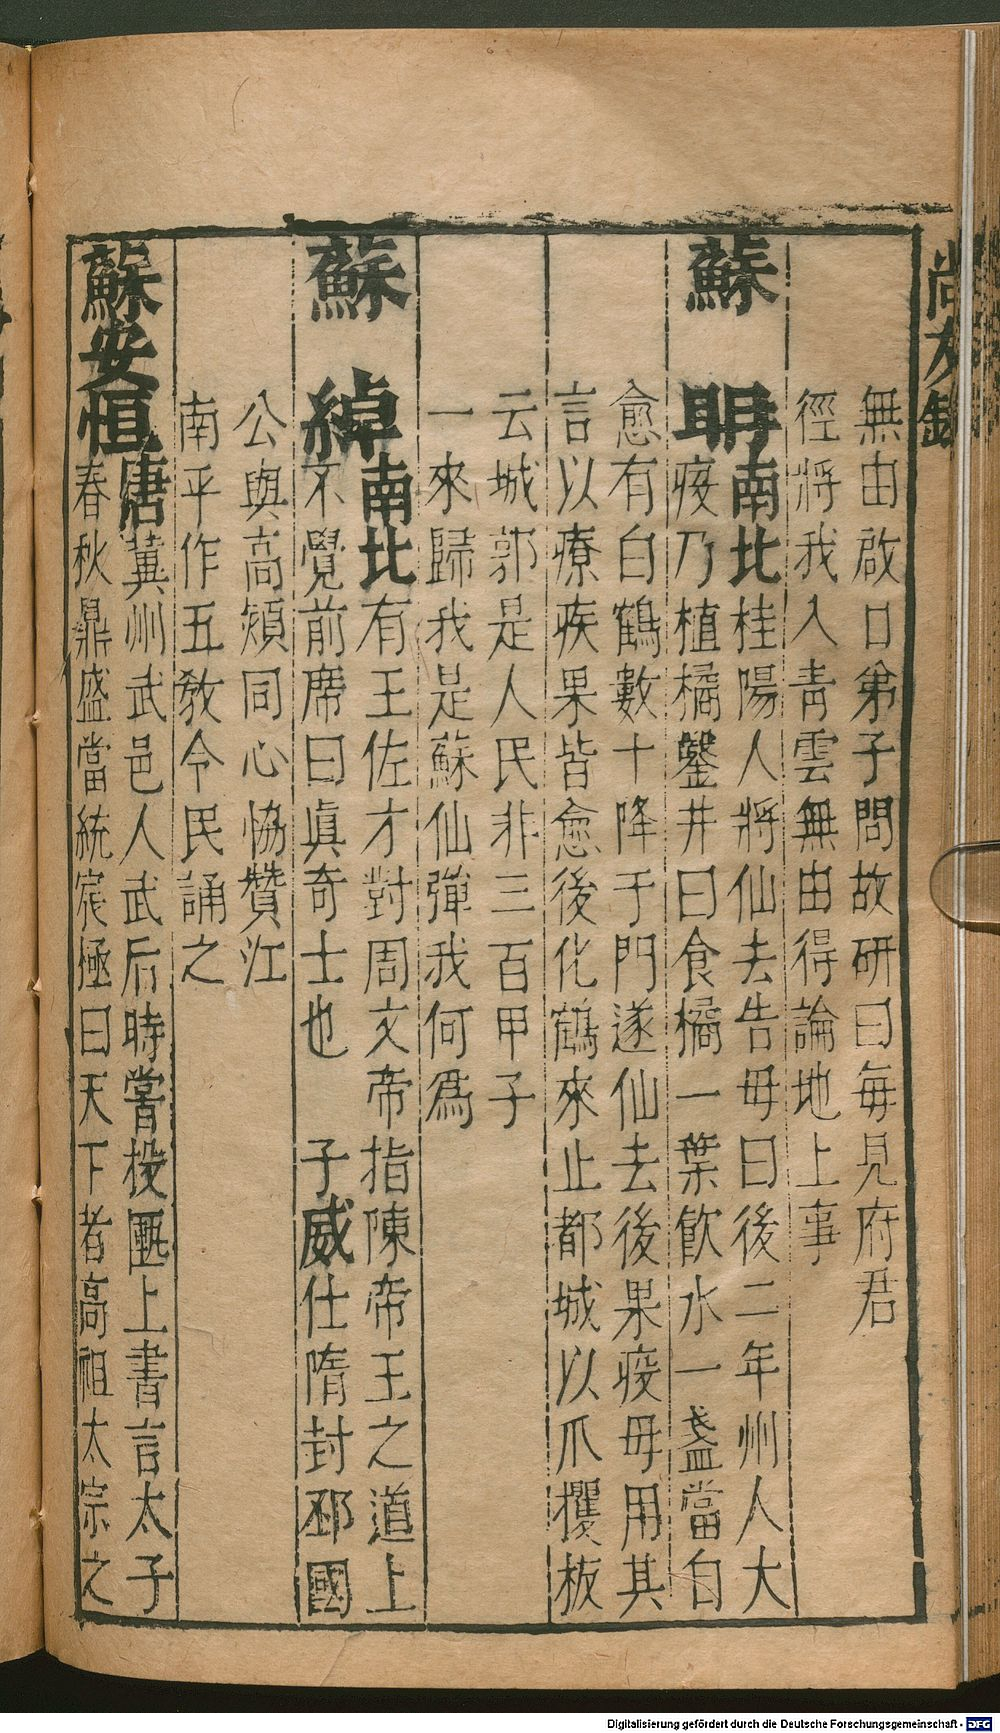 尚友錄
無由啟口弟子問故研曰每見府君
徑將我入青雲無由得論地上事
蘇　明
南北桂陽人將仙去告母曰後二年州人大
疫乃植橘鑿井曰食橘一葉飲水一盞當自
愈有白鶴數十降于門遂仙去後果疫母用其
言以療疾果皆愈後化鶴來止都城以爪攫板
云城郭是人民非三百甲子
一來歸我是蘇仙彈我何爲
蘇　綽
南北有王佐才對周文帝指陳帝王之道上
不覺前席曰眞奇士也　子威仕隋封邳國
公與高熲同心協贊江
南平作五敎令民誦之
蘇安恒
唐冀州武邑人武后時嘗投匭上書言太子
春秋鼎盛當統宸極曰天下者高祖太宗之
Digitalisierung gefördert durch die Deutsche Forschungsgemeinschaft - DFG